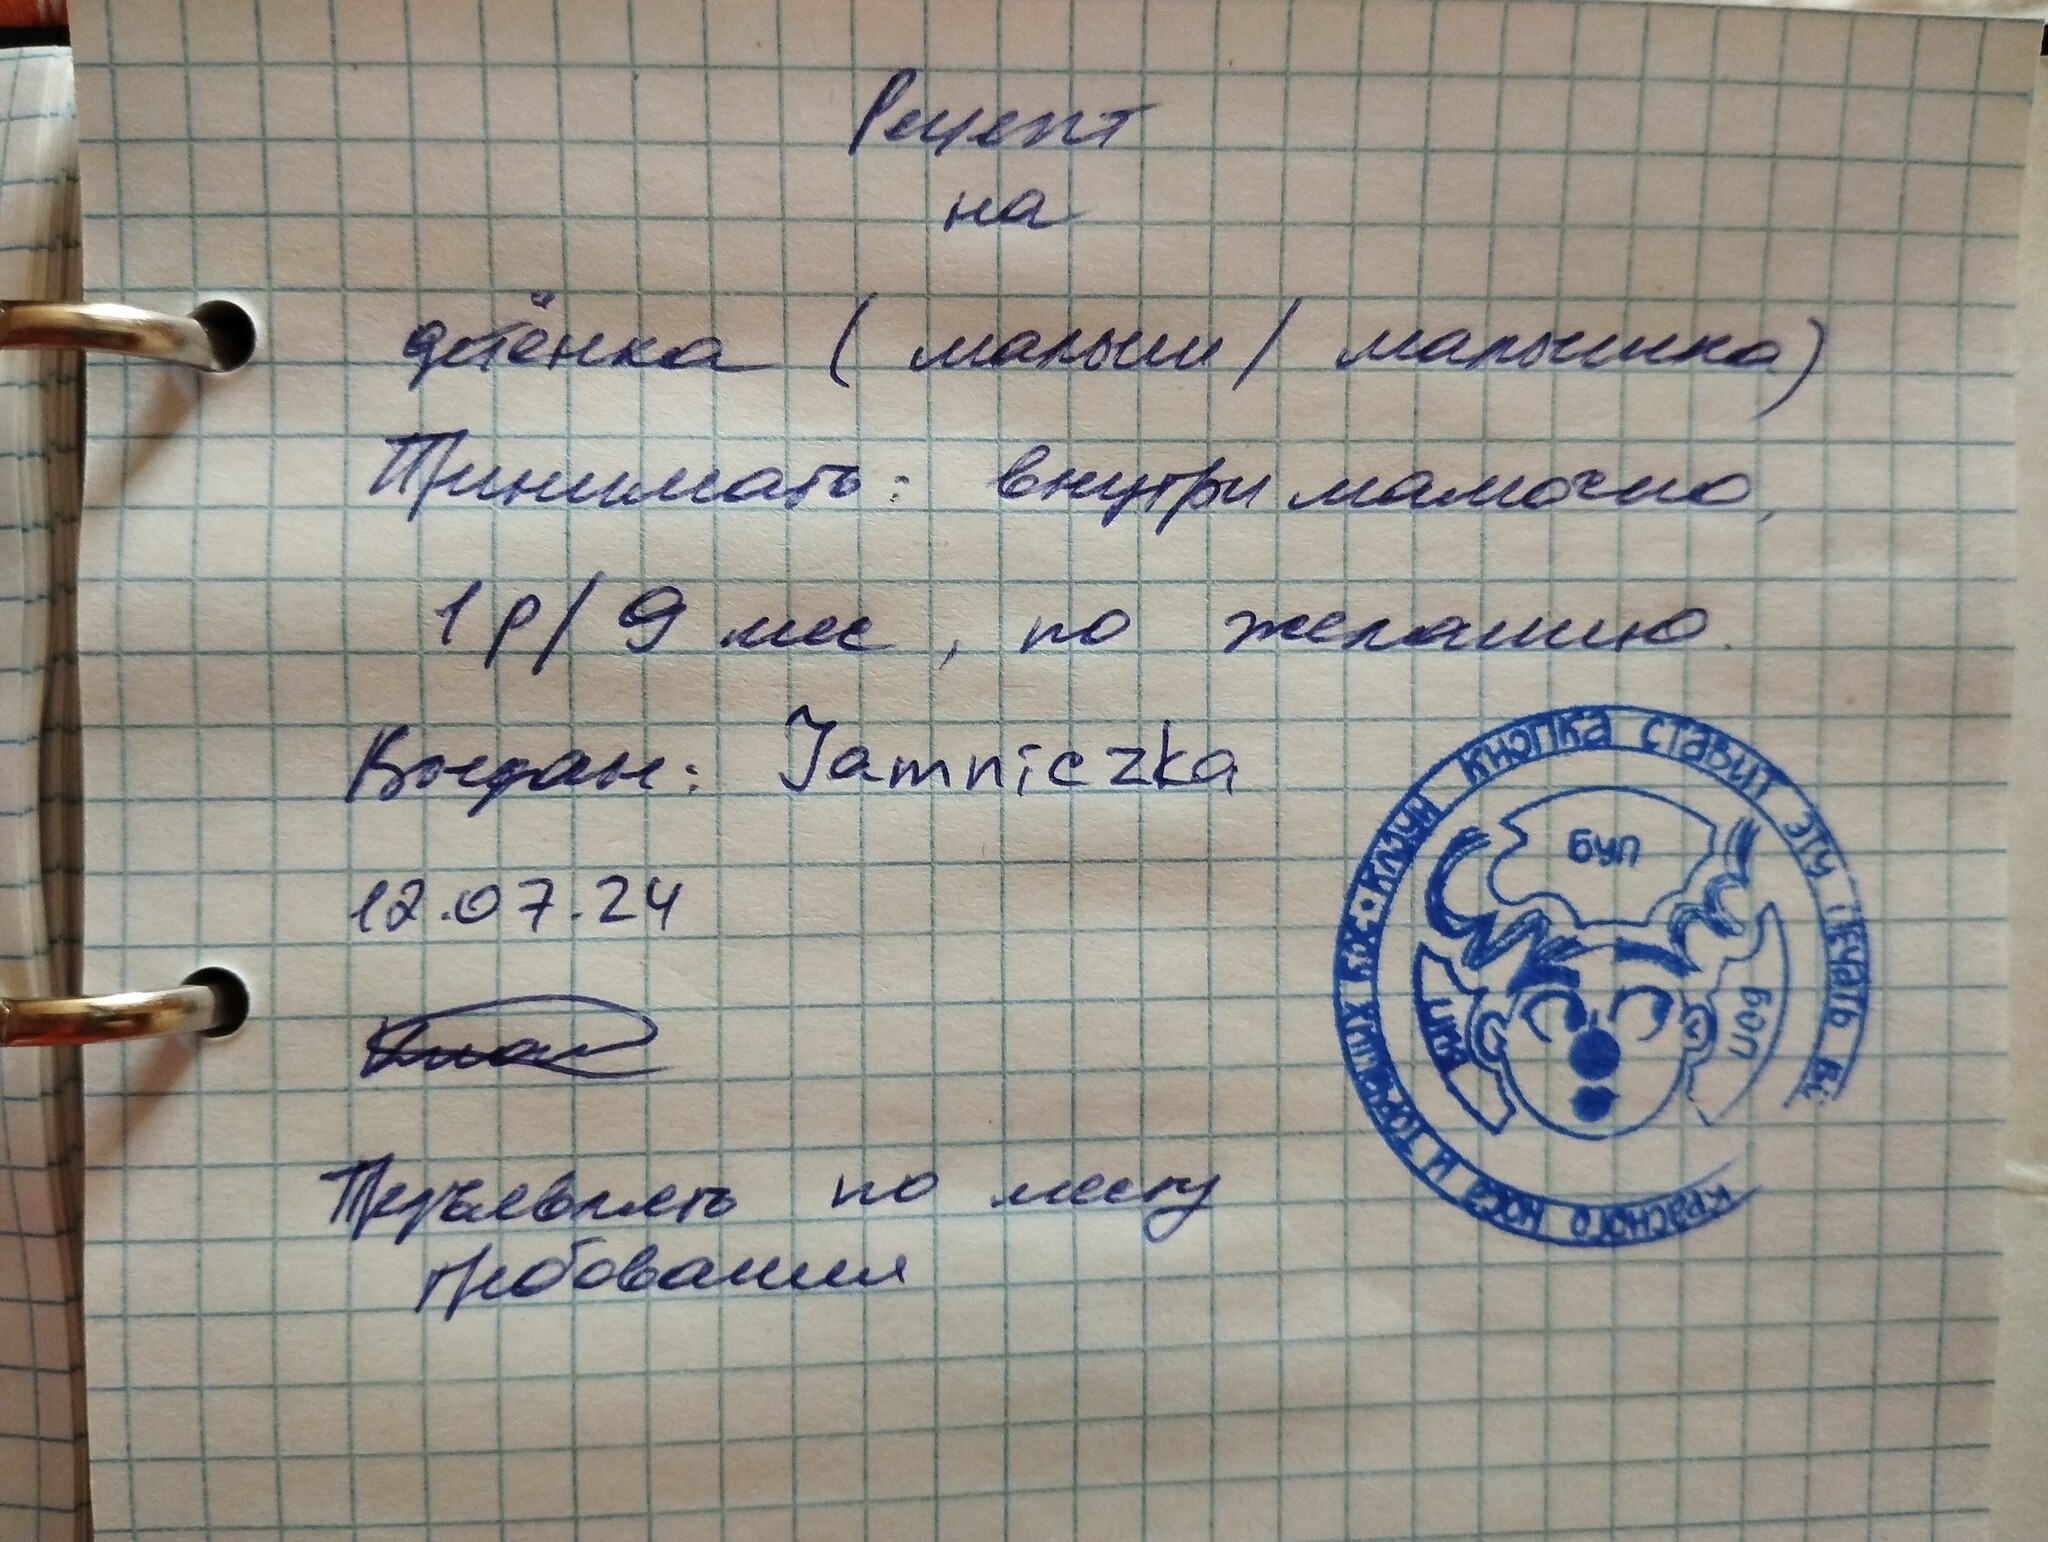 Рецепт
на
дитёнка (малыш / малышка)
Принимать: внутримамочно,
1 р/9 мес, по желанию.
Выдан: Jamniczka
12.07.24
Предъявлять по месту
требования
КЛОУН КНОПКА СТАВИТ ЭТУ ПЕЧАТЬ
КРАСНОГО НОСА И ТОРЧАЩИХ
БУП
БИП
БОП